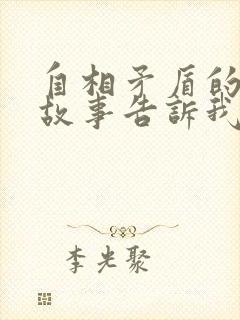 自相矛盾的
故事告訴我
李光聚